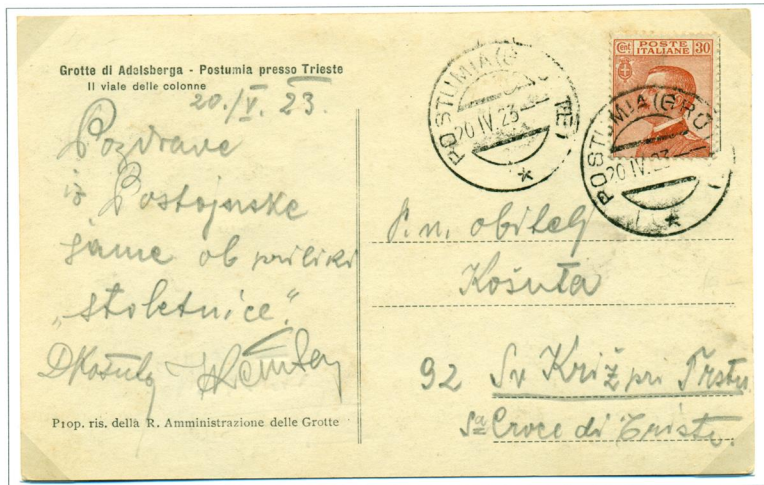 Grotte di Adelsberga - Postumia presso Trieste
Il viale delle colonne
20./V. 23.
Pozdrave
iz Postojnske
jame ob priliki
„stoletnice".
DKošuta
Prop. ris. della R. Amministrazione delle Grotte
POSTUMIA (GR TE)
20 IV 23
Cent POSTE ITALIANE 30
POSTUMIA (GRO
20 IV. 23
P. n. obitelj
Košuta
92 Sv Križ pri Trstu
Sa Croce di Trieste.